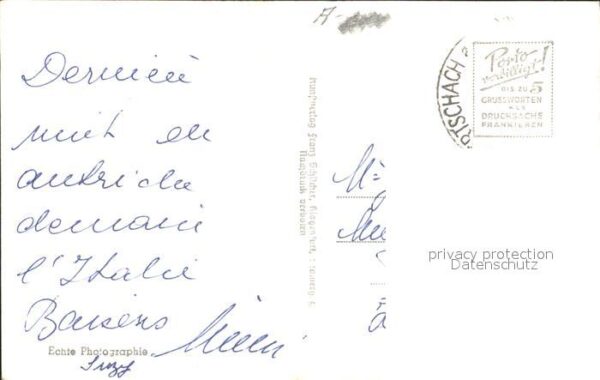 A-
Dernière
nuit en
autriche
demain
l'Italie
Baisers
Echte Photographie
Porto
verbilligt!
BIS ZU 5
GRUSSWORTEN
ALS
DRUCKSACHE
FRANKIEREN
RTSCHACH
Nachdruck verboten
privacy protection
Datenschutz